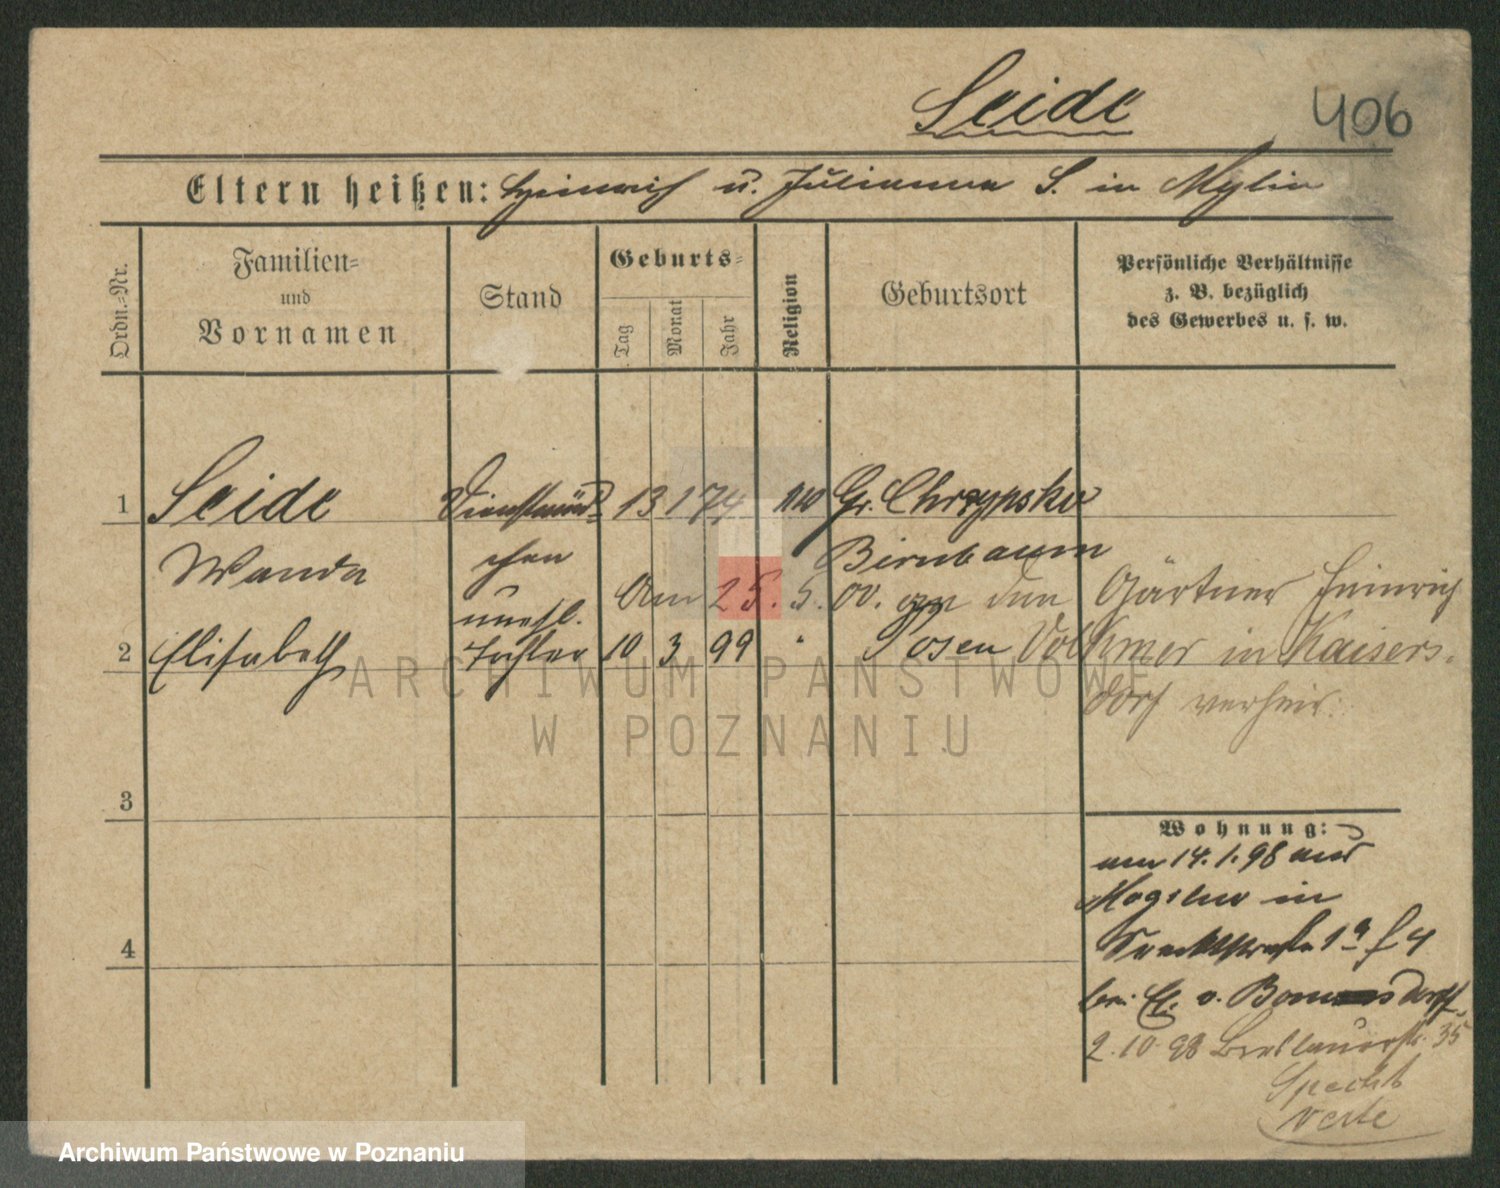 Seide 406
Eltern heißen: Heinrich u. Julianna S. in Mylin
Ordn.-Nr.
Familien-
und
Vornamen
Stand
Geburts-
Tag
Monat
Jahr
Religion
Geburtsort
Persönliche Verhältnisse
z. B. bezüglich
des Gewerbes u. s. w.
1 Seide Dienstmäd- 13 1 74 Gr. Chrzypsko
Wanda chen Birnbaum
unehl. Am 25. 5. 00. den Gärtner Heinrich
2 Elisabeth Tochter 10 3 99 " Posen Volkmer in Kaisers-
dorf verheir.
3
Wohnung:
am 14. 1. 98 aus
Mogilno in
4
1a f 4
bei v.
2. 10. 98 Breslauerstr. 35
Specht
verte
ARCHIWUM PAŃSTWOWE
W POZNANIU
Archiwum Państwowe w Poznaniu